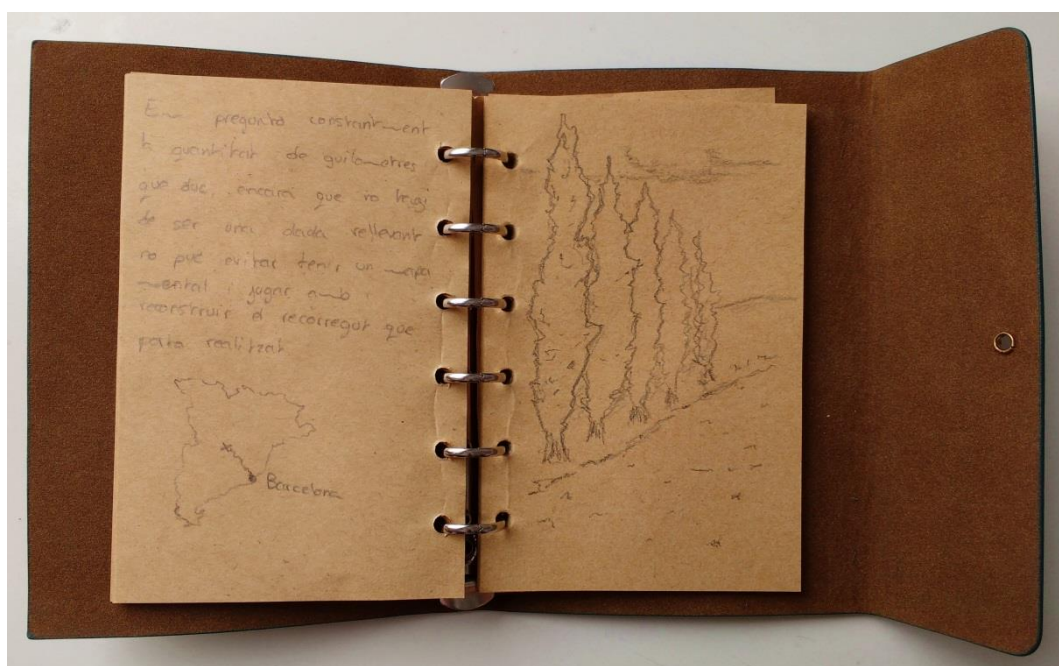 Em pregunto constantment
la quantitat de quilometres
que duc, encara que no hagi
de ser una dada rellevant
no puc evitar tenir un mapa
mental i jugar amb
reconstruir el recorregut que
porto realitzat
Barcelona